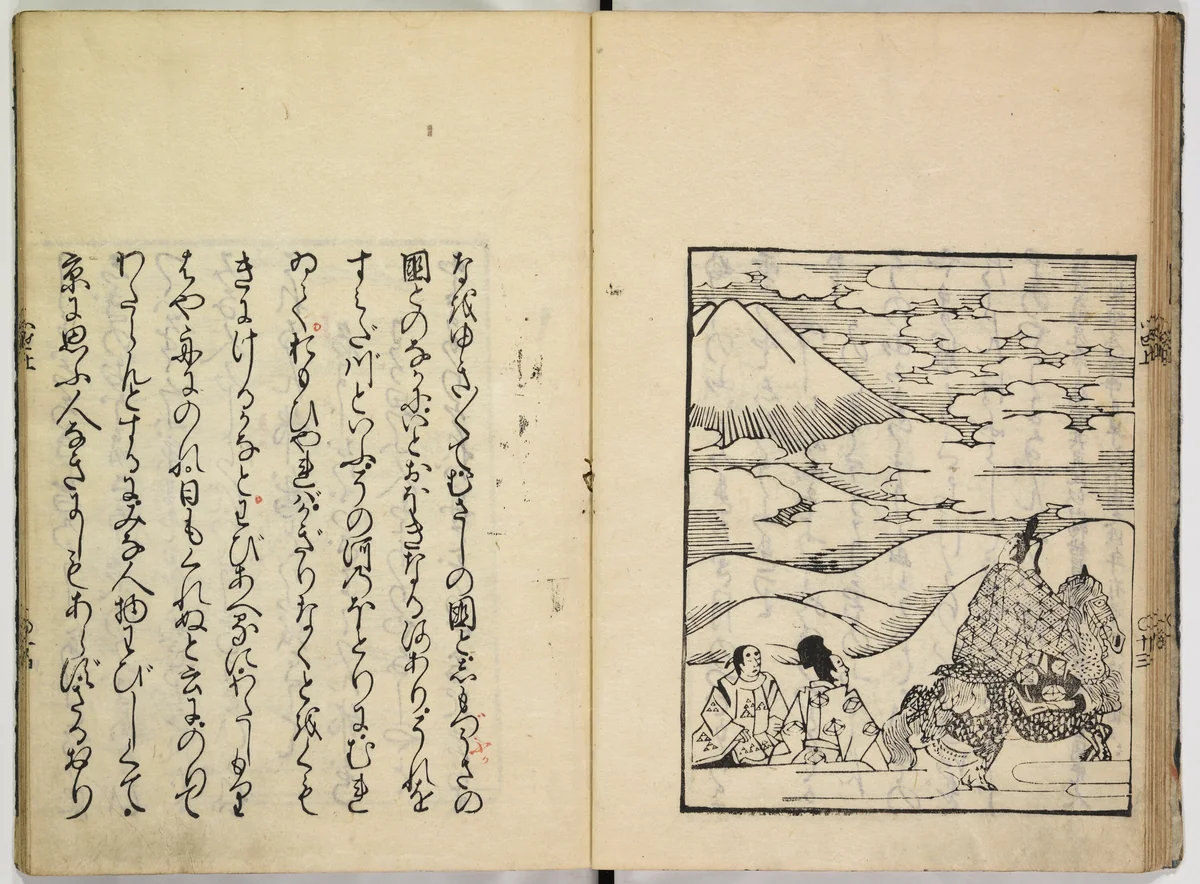 なをゆき〳〵てむさしの國としもづうさの
國とのなかにいとおほきなる河ありそれを
すみだ川といふその河のほとりにむれ
ゐておもひやればかぎりなくとをくも
きにけるかなとわびあへるにわたしもり
はや舟にのれ日もくれぬと云にのりて
わたらんとするにみな人物わびしくて
京に思ふ人なきにしもあらずさるおり